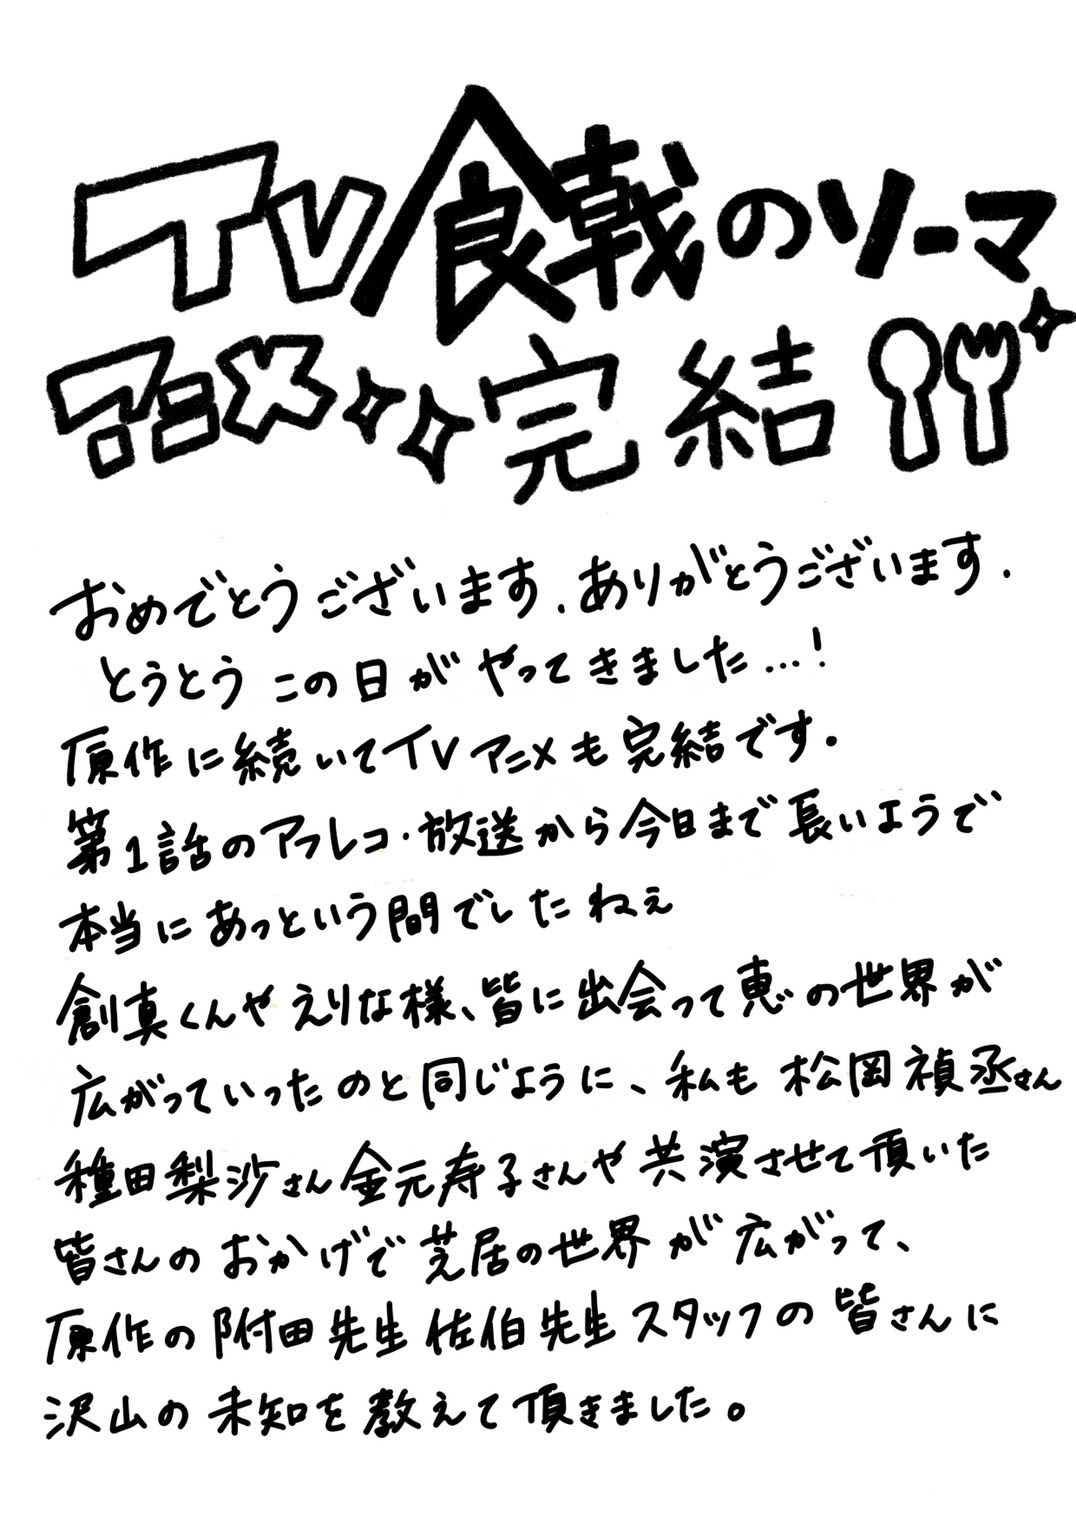 TV食戟のソーマ
アニメ完結
おめでとうございます.ありがとうございます.
とうとうこの日がやってきました…!
原作に続いてTVアニメも完結です。
第1話のアフレコ・放送から今日まで長いようで
本当にあっという間でしたねぇ
創真くんやえりな様、皆に出会って恵の世界が
広がっていったのと同じように、私も 松岡禎丞さん
種田梨沙さん金元寿子さんや共演させて頂いた
皆さんのおかげで芝居の世界が広がって、
原作の附田先生 佐伯先生 スタッフの皆さんに
沢山の未知を教えて頂きました。